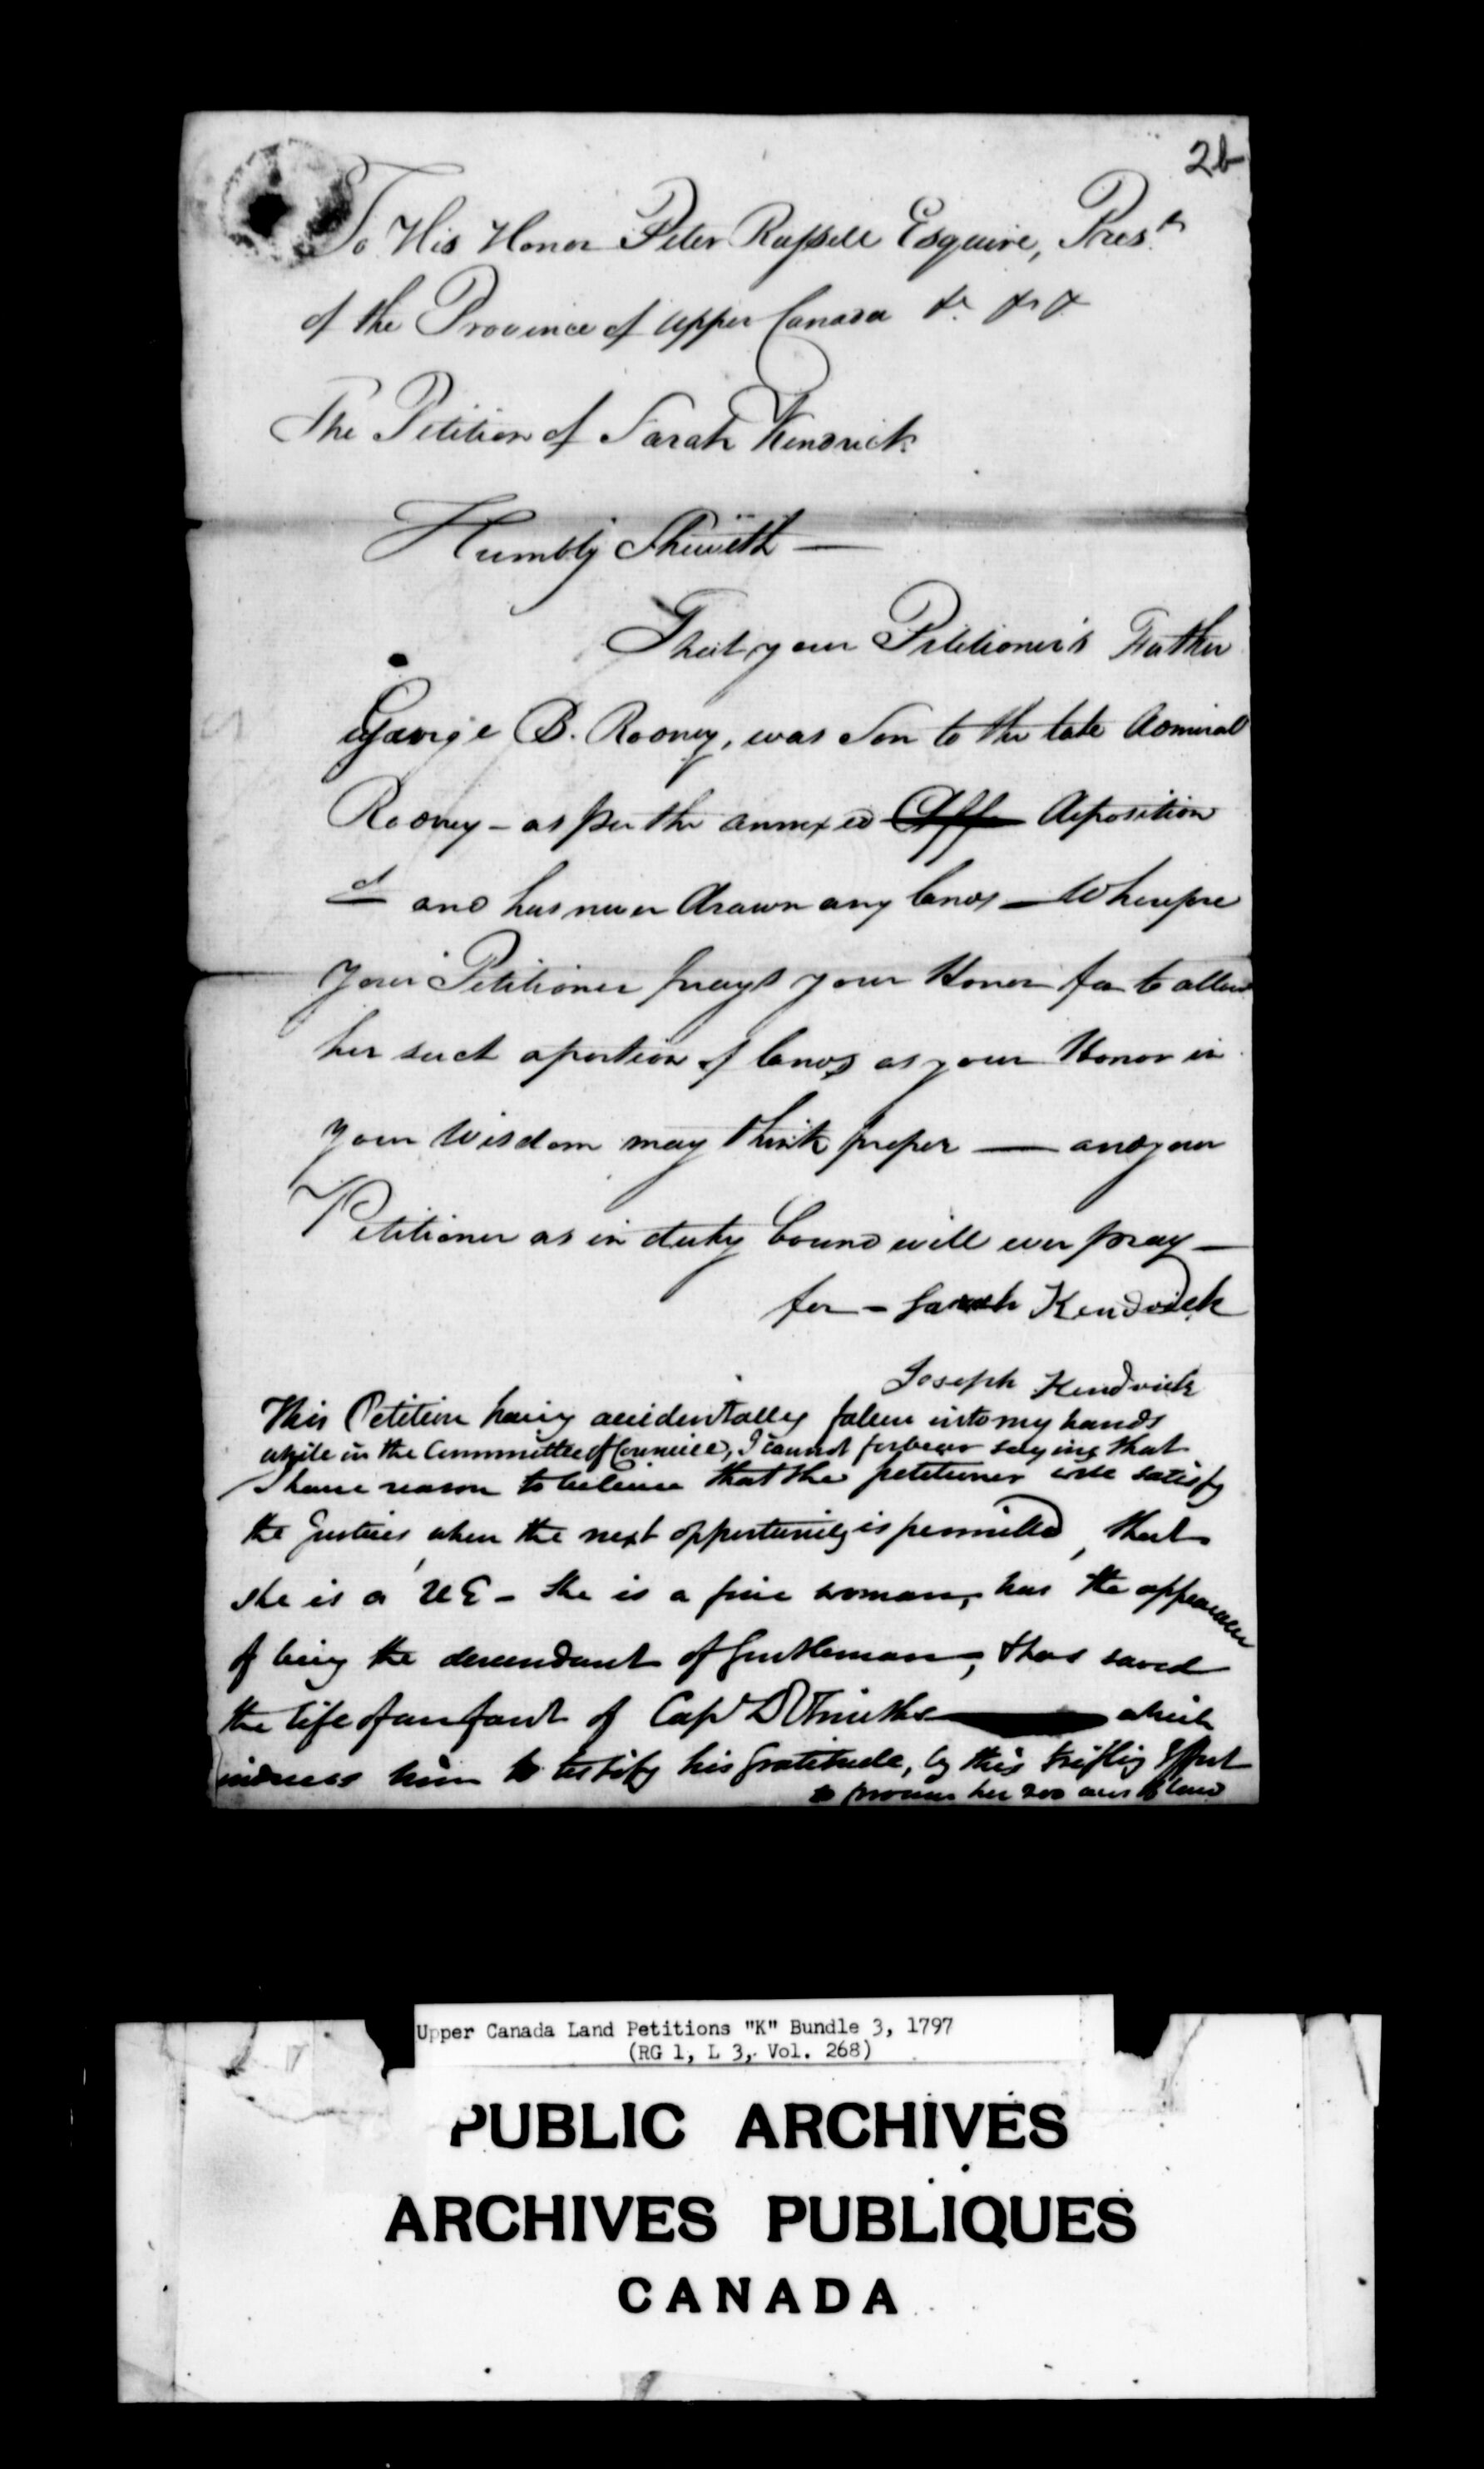 2b
To His Honor Peter Russell Esquire, Presdt
of the Province of Upper Canada &c &c &
The Petition of Sarah Kendrick
Humbly Sheweth —
That your Petitioner's Father
George B. Rodney, was Son to the late Admiral
Rodney – as per the annexed Aff Deposition
and has never drawn any lands — Wherefore
your Petitioner prays your Honor for to allow
her such a portion of lands as your Honor in
your Wisdom may think proper — and your
Petitioner as in duty bound will ever pray —
for – Sarah Kendrick
Joseph Kendrick
This Petition having accidentally fallen into my hands
while in the Committee of Council, I cannot forbear saying that
I have reason to believe that the petitioner will satisfy
the Justices when the next opportunity is permitted, that
she is a UE – she is a fine woman, has the appearance
of being the descendant of Gentleman, & has saved
the life of an Infant of Capt D W Smith which
induces him to testify his gratitude, by this trifling effort
to procure her 200 acres of land
Upper Canada Land Petitions "K" Bundle 3, 1797
(RG 1, L 3, Vol. 268)
PUBLIC ARCHIVES
ARCHIVES PUBLIQUES
CANADA